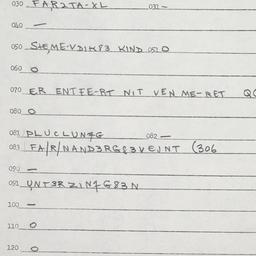 030 FAR2TA-XL 031 -
040 -
050 STEME-VDIK83 KIND 051 O
060 O
070 ER ENTFE-RT NIT VEN ME-RET
080 O
081 PLUCLUN4G 082 -
083 FA/R/NAND3RG83VEJNT (306
090 -
091 UNT3R ZIN4G83N
100 -
110 O
120 O